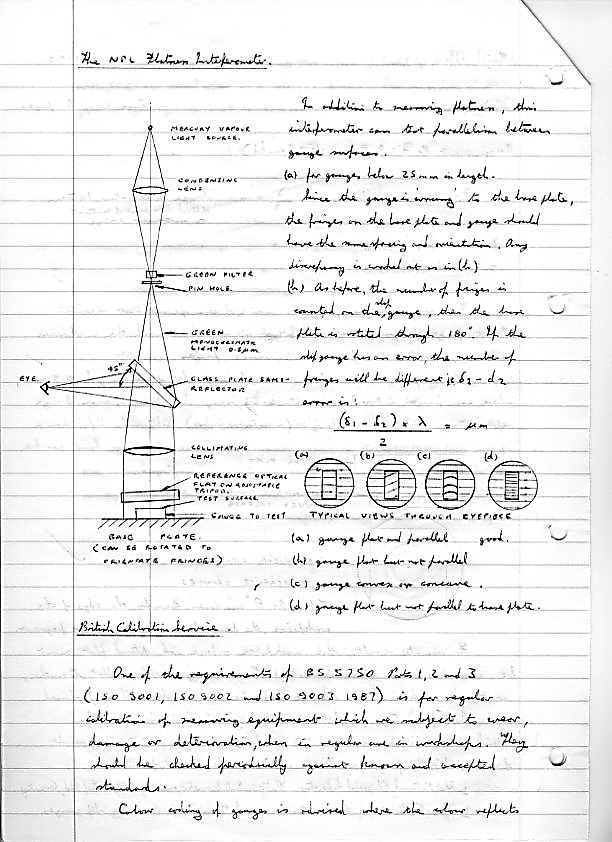 The NPL Flatness Interferometer.
MERCURY VAPOUR
LIGHT SOURCE.
CONDENSING
LENS
GREEN FILTER
PIN HOLE.
GREEN
MONOCHROMATIC
LIGHT 0.5µm
45°
EYE.
GLASS PLATE SEMI-
REFLECTOR
COLLIMATING
LENS
REFERENCE OPTICAL
FLAT ON ADJUSTABLE
TRIPOD.
TEST SURFACE
GAUGE TO TEST
BASE PLATE.
(CAN BE ROTATED TO
ORIENTATE FRINGES)
In addition to measuring flatness, this
interferometer can test parallelism between
gauge surfaces.
(a) for gauges below 25mm in length.
Since the gauge is wrung to the base plate,
the fringes on the base plate and gauge should
have the same spacing and orientation. Any
discrepancy is worked out as in (b)
(b) As before, the number of fringes is
counted on the slip gauge, then the base
plate is rotated through 180°. If the
slip gauge has an error, the number of
fringes will be different ie δ1 - δ2
error is:
(δ1 - δ2) × λ / 2 = µm
(a) (b) (c) (d)
TYPICAL VIEWS THROUGH EYEPIECE
(a) gauge flat and parallel good.
(b) gauge flat but not parallel
(c) gauge convex or concave.
(d) gauge flat but not parallel to base plate.
British Calibration Service.
One of the requirements of BS 5750 Parts 1, 2 and 3
(ISO 9001, ISO 9002 and ISO 9003 1987) is for regular
calibration of measuring equipment which are subject to wear,
damage or deterioration, when in regular use in workshops. They
should be checked periodically against known and accepted
standards.
Colour coding of gauges is advised where the colour reflects